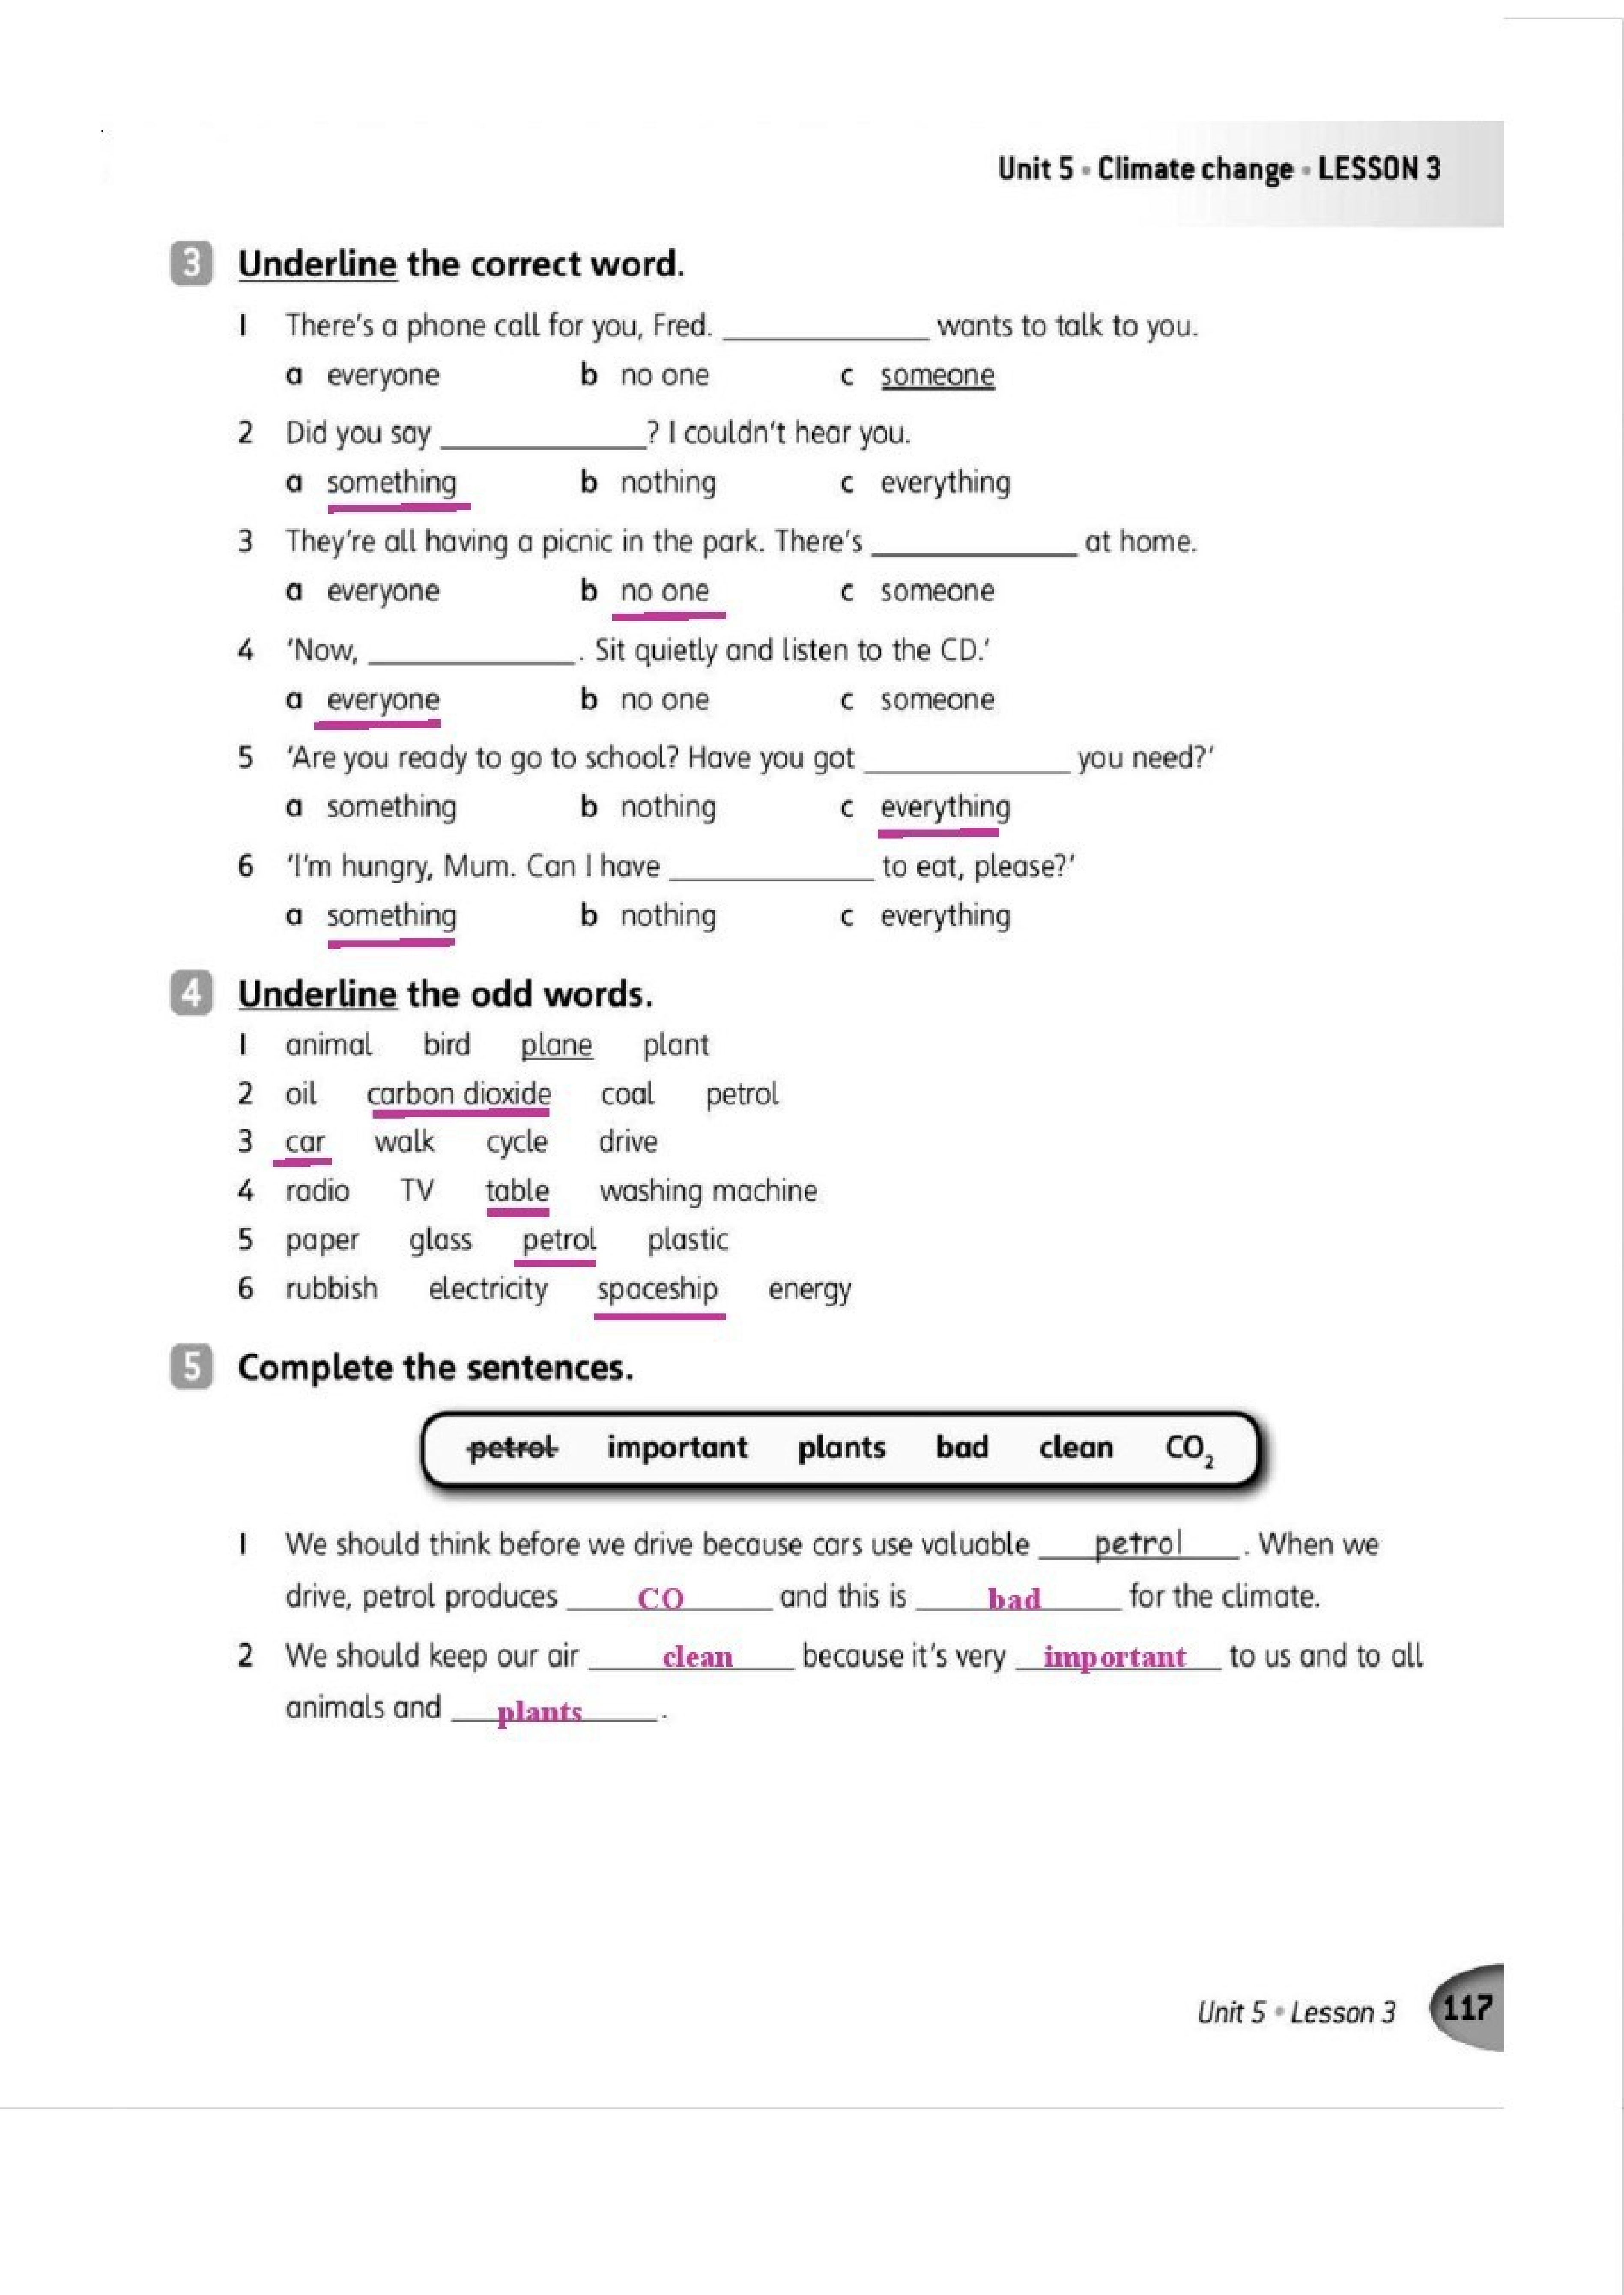 Unit 5 • Climate change • LESSON 3
3 Underline the correct word.
1 There's a phone call for you, Fred. ____________ wants to talk to you.
a everyone b no one c someone
2 Did you say ____________? I couldn't hear you.
a something b nothing c everything
3 They're all having a picnic in the park. There's ____________ at home.
a everyone b no one c someone
4 'Now, ____________. Sit quietly and listen to the CD.'
a everyone b no one c someone
5 'Are you ready to go to school? Have you got ____________ you need?'
a something b nothing c everything
6 'I'm hungry, Mum. Can I have ____________ to eat, please?'
a something b nothing c everything
4 Underline the odd words.
1 animal bird plane plant
2 oil carbon dioxide coal petrol
3 car walk cycle drive
4 radio TV table washing machine
5 paper glass petrol plastic
6 rubbish electricity spaceship energy
5 Complete the sentences.
petrol important plants bad clean CO₂
1 We should think before we drive because cars use valuable petrol. When we
drive, petrol produces CO and this is bad for the climate.
2 We should keep our air clean because it's very important to us and to all
animals and plants.
Unit 5 • Lesson 3 117